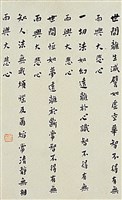 世間離生滅譬如虛空華智不得有無
而興大悲心
一切法如幻遠離於心識智不得有無
而興大悲心
世間恒如夢遠離於斷常智不得有無
而興大悲心
知人法無我煩惱及爾焰常清淨無相
而興大悲心